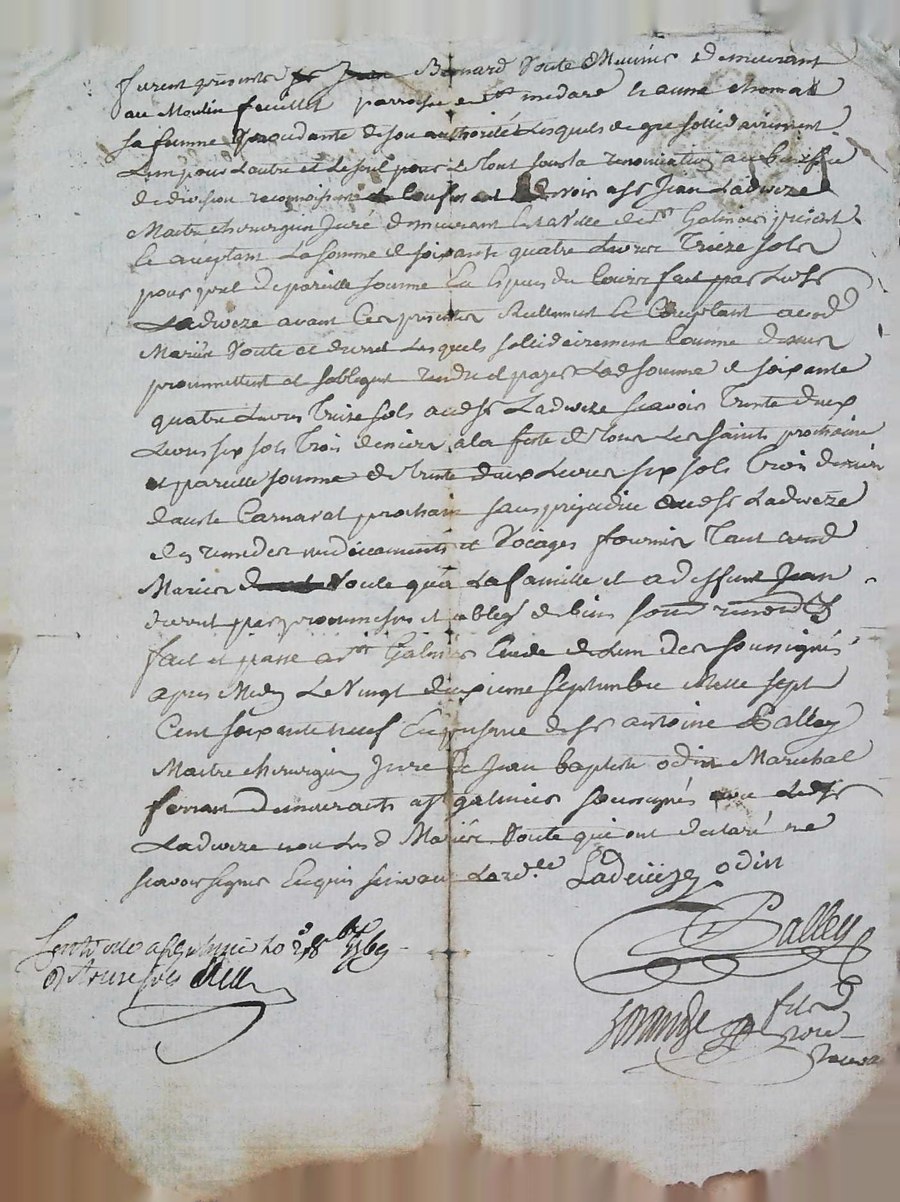 furent présents Bernard Voute Munier demeurant
au Moulin feuillet parroisse de St medard & anne thomas
sa femme procedante de son authorité Lesquels de gre sollidairement
Lun pour Lautre et Le seul pour Le Tout sous la renonciation au benefice
de division reconnoissent et confessent devoir a sr Jean Ladweze
Maitre chirurgien Juré demeurant en la Ville de St Galmier présent
& acceptant La somme de soixante quatre Livres Treize sols
pour prêt de pareille somme En Especes du Cours fait par Led Sr
Ladweze avant Ces presentes Reellement & Comptant aud
Mariés Voute et Lesquels sollidairement Comme dessus
promettent et sobligent rendre et payer Lad somme de soixante
quatre Livres Treize sols aud Sr Ladweze scavoir Trente deux
Livres six sols Trois deniers a la feste de Tous Les saints prochaine
et pareille somme de Trente deux Livres six sols Trois deniers
Carnaval prochain sans prejudice aud Sr Ladweze
des remedes medicaments et Voiages fournis Tant aud
Mariés Voute qua La famille et a deffunt Jean
par promesses et oblig de biens
fait et passé a St Galmier Etude de Lun des soussignés
apres Midy Le Vingt deuxieme septembre Mille sept
Cent soixante neuf En presence de Sr antoine Balley
Maitre chirurgien Juré & Jean baptiste odin Marechal
ferrant demeurants a St galmier soussignés avec Led Sr
Ladweze non Les d Mariés Voute qui ont declaré ne
scavoir signer Enquis suivant Lord.ce Ladeuize odin
Balley
Controllé a St Galmier le 28 7bre 1769
R treize sols